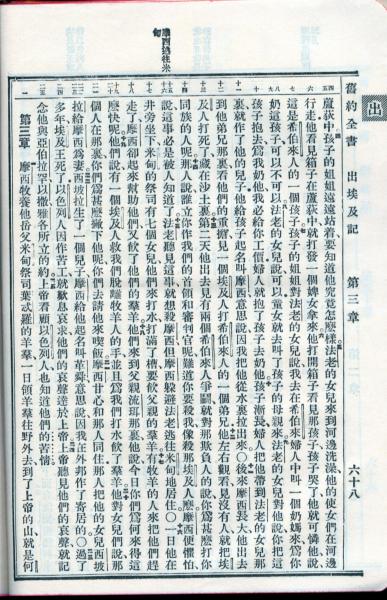 出
舊約全書 出埃及記 第三章 六十八
蘆荻中孩子的姐姐遠遠站着要知道他究竟怎麼樣法老的女兒來到河邊洗澡他的使女們在河邊
行走他看見箱子在蘆荻中就打發一個婢女拿來他打開箱子看見那孩子孩子哭了他就可憐他說
這是希伯來人的一個孩子孩子的姐姐對法老的女兒說我去在希伯來婦人中叫一個奶媽來爲你
奶這孩子可以不可以法老的女兒說可以童女就去叫了孩子的母親來法老的女兒對他說你把這
孩子抱去爲我奶他我必給你工價婦人就抱了孩子去奶他孩子漸長婦人把他帶到法老的女兒那
裏就作了他的兒子他給孩子起名叫摩西意思說因我把他從水裏拉出來〇後來摩西長大他出去
到他弟兄那裏看他們的重擔見一個埃及人打希伯來人的一個弟兄他左右觀看見沒有人就把埃
及人打死了藏在沙土裏第二天他出去見有兩個希伯來人爭鬭就對那欺負人的說你爲甚麼打你
同族的人呢那人說誰立你作我們的首領和審判官呢難道你要殺我像殺那埃及人麼摩西便懼怕
摩西逃往米甸
說這事必是被人知道了法老聽見這事就想殺摩西但摩西躲避法老逃往米甸地居住〇一日他在
井旁坐下米甸的祭司有七個女兒他們來打水打滿了槽要飲父親的羣羊有牧羊的人來把他們趕
走了摩西卻起來幫助他們又飲了他們的羣羊他們來到父親流珥那裏他說今日你們爲何來得這
麼快呢他們說有一個埃及人救我們脫離牧羊人的手並且爲我們打水飲了羣羊他對女兒們說那
個人在那裏你們爲甚麼撇下他呢你們去請他來喫飯摩西甘心和那人同住那人把他的女兒西坡
拉給摩西爲妻西坡拉生了一個兒子摩西給他起名叫革舜意思說因我在外邦作了寄居的〇過了
多年埃及王死了以色列人因作苦工就歎息哀求他們的哀聲達於上帝上帝聽見他們的哀聲就記
念他與亞伯拉罕以撒雅各所立的約上帝看顧以色列人也知道他們的苦情
第三章 摩西牧養他岳父米甸祭司葉忒羅的羊羣一日領羊羣往野外去到了上帝的山就是何